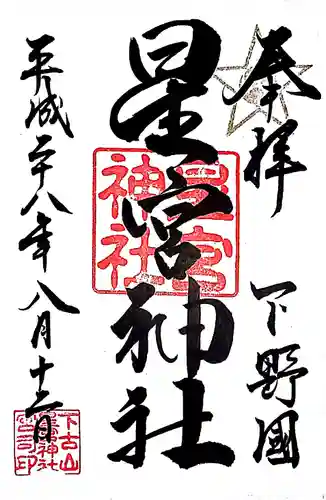 奉拝
下野國
星宮神社
星宮神社
平成二十八年八月十二日
下古山
星宮神社
宮司之印